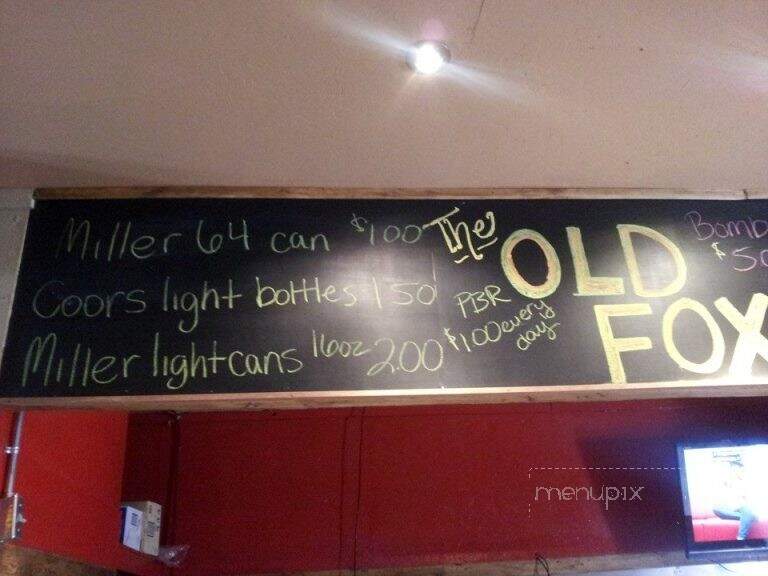 Miller 64 can $1.00
Coors light bottles 1.50
Miller light cans 16oz 2.00
The
OLD
FOX
PBR
$1.00 every
day
Bomb
$
menupix